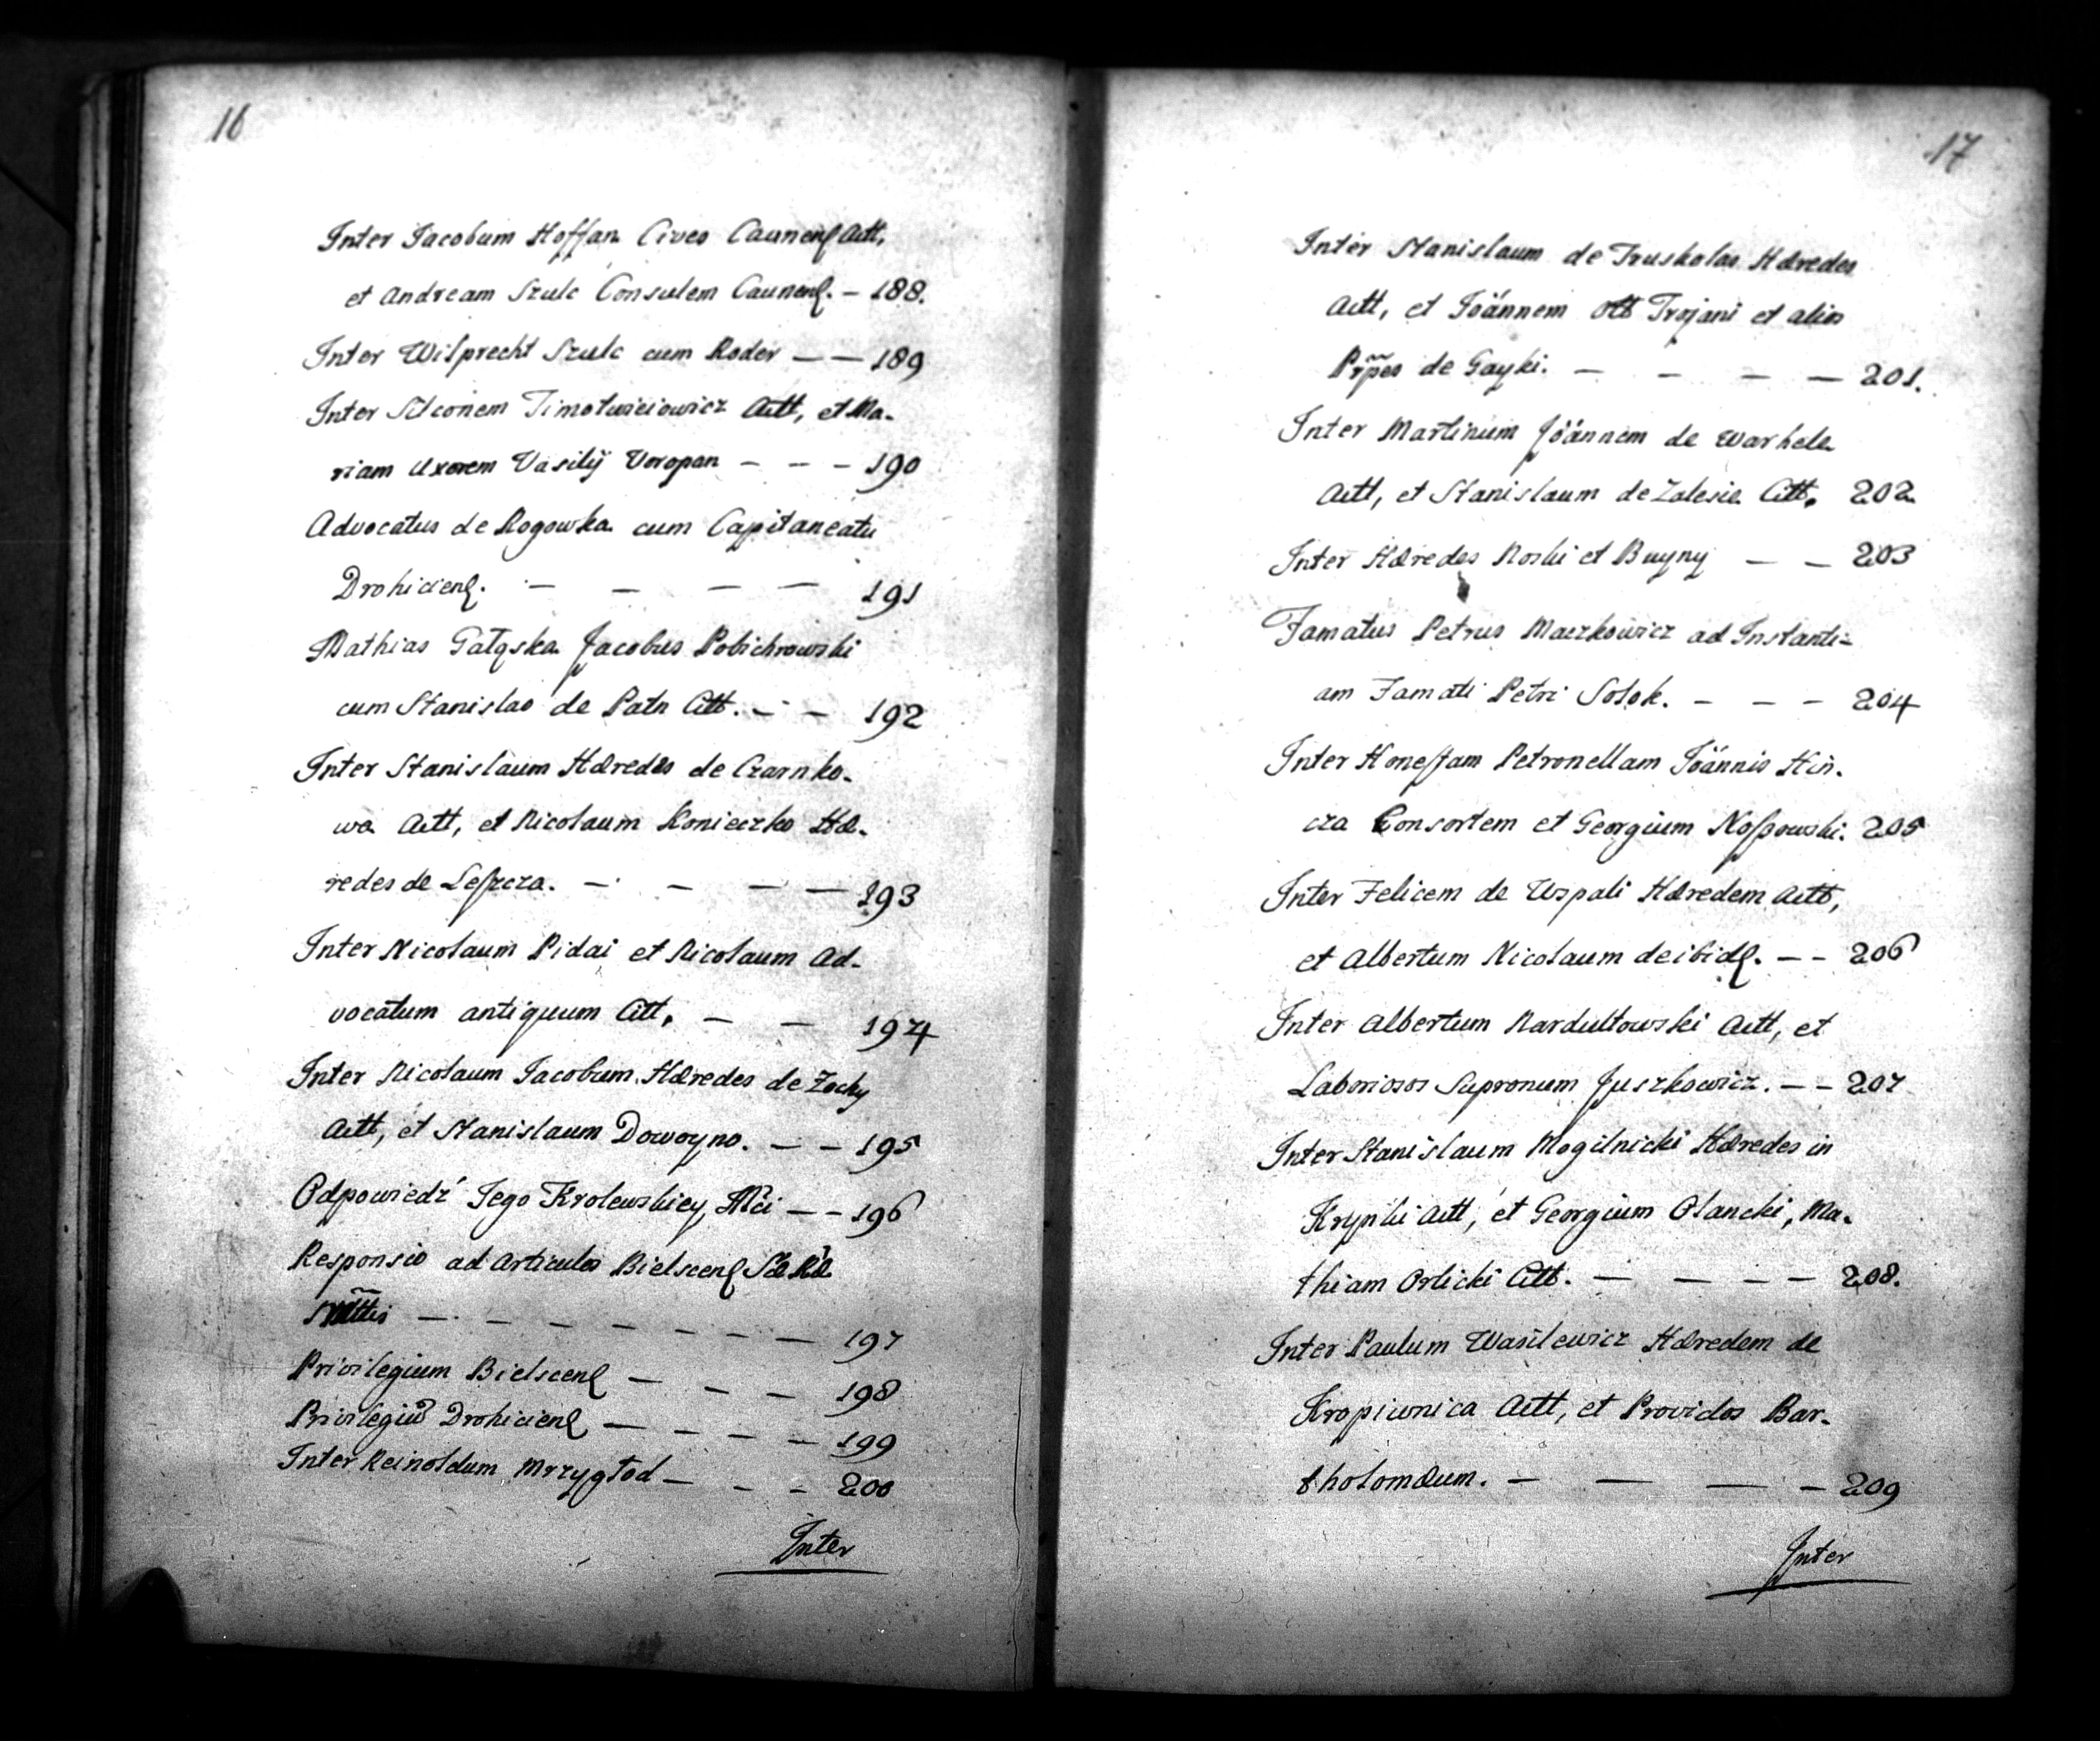 16
Inter Jacobum Hoffan Cives Caunens Actt,
et Andream Szulc Consulem Caunens. – 188.
Inter Wilprecht Szulc cum Roder — — 189
Inter Sileonem Timotwieiowicz Actt, et Ma-
riam Uxorem Vasilij Voropan – – – 190
Advocatus de Rogowka cum Capitaneatu
Drohiciens. – — — — 191
Mathias Gałąska Jacobus Pobichrowski
cum Stanislao de Patn Citt. – – 192
Inter Stanislaum Hæredes de Czarnko-
wa Actt, et Nicolaum Konieczko Hæ-
redes de Leszcza. – – — — 193
Inter Nicolaum Pidai et Nicolaum Ad-
vocatum antiquum Citt. — — 194
Inter Nicolaum Jacobum Hæredes de Zochy
Actt, et Stanislaum Dowoyno. — – 195
Odpowiedź Jego Krolewskiey Mci — – 196
Responsio ad Articulos Bielscens Sæ Ræ
— – – – – – – — 197
Privilegium Bielscens — – – 198
Privilegiū Drohiciens — – – – — 199
Inter Reinoldum Mrzygłod — – – 200
Inter
17
Inter Stanislaum de Truskolas Hæredes
Actt, et Joánnem Trojani et alios
de Gayki. — – — — 201.
Inter Martinum Joánnem de Warhele
Actt, et Stanislaum de Zalesie Citt. 202
Inter Hæredes Noski et Buyny — – 203
Famatus Petrus Maczkowicz ad Instanti=
am Famati Petri Solok. – – – 204
Inter Honestam Petronellam Joánnis Hin-
cza Consortem et Georgium Nossowski. 205
Inter Felicem de Uspali Hæredem Actt,
et Albertum Nicolaum de ibid. – – 206
Inter Albertum Nardultowski Actt, et
Laboriosos Supronum Juszkowicz. – – 207
Inter Stanislaum Mogilnicki Hæredes in
Krypki Actt, et Georgium Olancki, Ma-
thiam Orlicki Citt. — — – — 208.
Inter Paulum Wasilewicz Hæredem de
Kropiwnica Actt, et Providos Bar-
tholomæum. – — — – 209
Inter